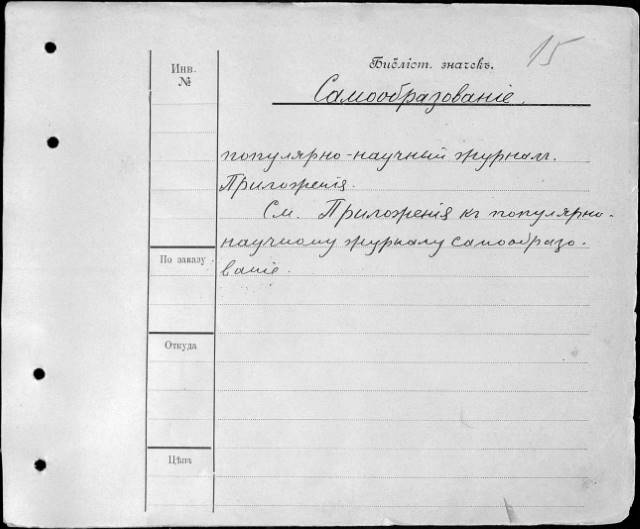 15
Инв.
№
Библіот. значекъ.
Самообразованіе.
популярно-научный журналъ.
Приложенія.
См. Приложенія къ популярно-
научному журналу самообразо-
ваніе.
По заказу
Откуда
Цѣна